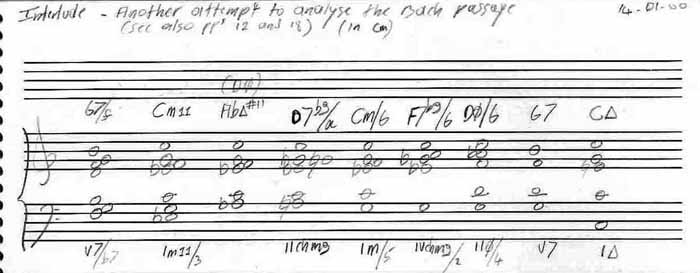 Interlude - Another attempt to analyse the Bach passage 14-01-00
(see also pp' 12 and 18) (in Cm)
(DØ)
G7/5 Cm11 AbΔ#11 D7b9/a Cm/G F7b9/G DØ/G G7 CΔ
V7/b7 Im11/3 IIchm9 Im/5 IVchm9/2 IIØ/4 V7 IΔ